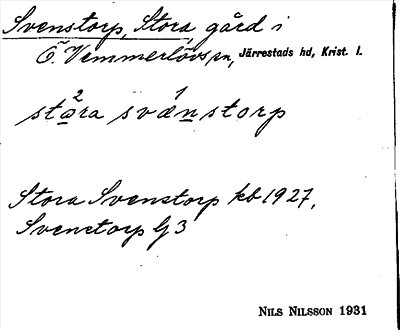 Svenstorp, Stora, gård i
Ö. Vemmerlövs sn, Järrestads hd, Krist. l.
2 1
stora svænstorp
Stora Svenstorp kb 1927,
Svenstorp Gj 3
NILS NILSSON 1931